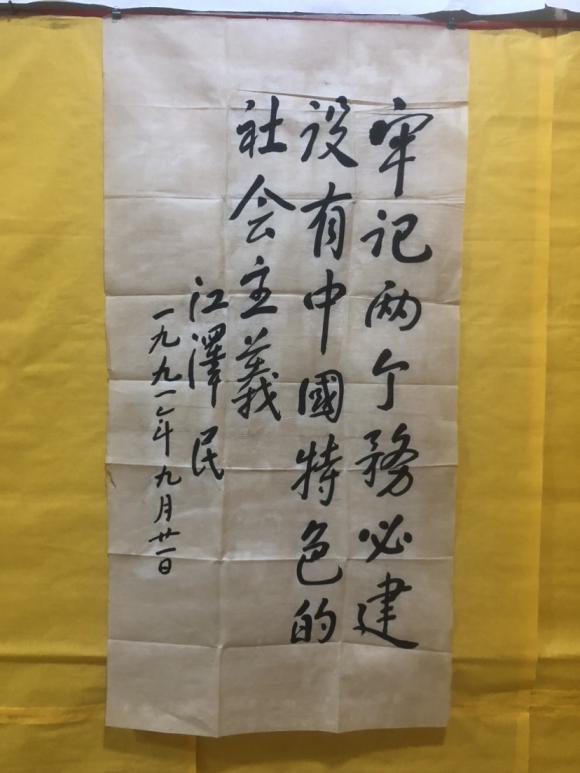 牢记两个務必建
设有中國特色的
社会主義
江澤民
一九九一年九月廿一日